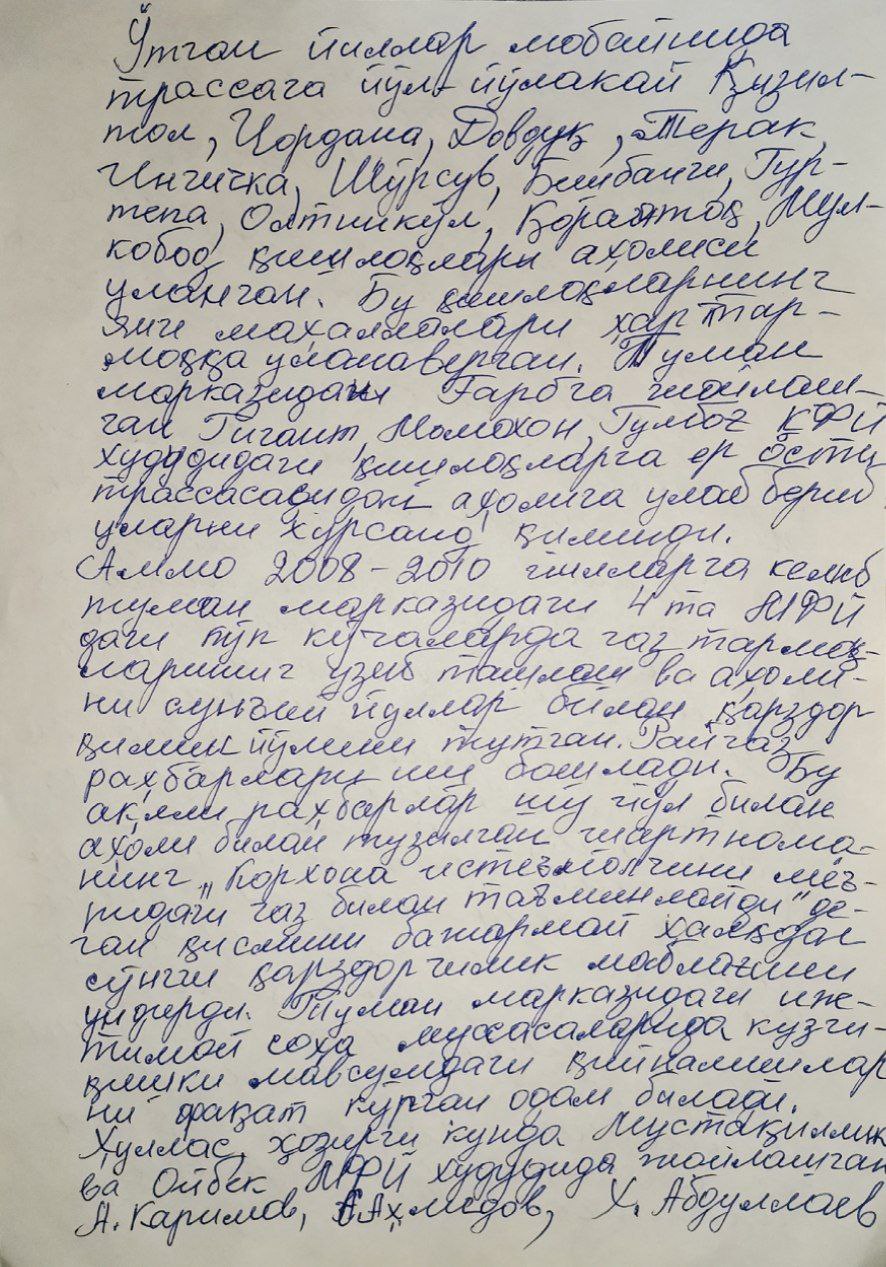 Ўтган йиллар мобайнида
трассага йўл-йўлакай Қизил-
тол, Чордана, Довдуқ, Терак,
Ингичка, Шўрсув, Бешбанги, Гур-
тепа, Олтинкўл, Қорайтоқ, Мул-
кобод қишлоқлари аҳолиси
уланган. Бу қишлоқларнинг
янги маҳаллалари ҳар тар-
моққа уланаверган. Туман
марказидан Ғарбга жойлаш-
ган Гигант, Момохон, Гулбоғ ҚФЙ
худудидаги қишлоқларга ер ости
трассасавидан аҳолига улаб бериб
уларни хурсанд қилинди.
Аммо 2008-2010 йилларга келиб
туман марказидаги 4 та МФЙ
даги тўп кўчаларда газ тармоқ-
ларининг узиб ташлаш ва аҳоли-
ни сунъий йуллар билан қарздор
қилиш йўлини тутган. Райгаз
раҳбарлари иш бошлади. Бу
ақлли раҳбарлар шу йўл билан
аҳоли билан тузилган шартнома-
нинг "Корхона истеъмолчини меъ-
ридаги газ билан таъминлайди" де-
ган қисмини бажармай ҳалқдан
сўнгги қарздорчилик маблағини
ундирди. Туман марказидаги иж-
тимоий соҳа муссасаларида кузги-
қишки мавсумдаги қийналишлар
ни фақат кўрган одам билади.
Хуллас, ҳозирги кунда Мустақиллик
ва Ойбек МФЙ худудида жойлашган
А. Каримов, А. Аҳмедов, Х. Абдуллаев